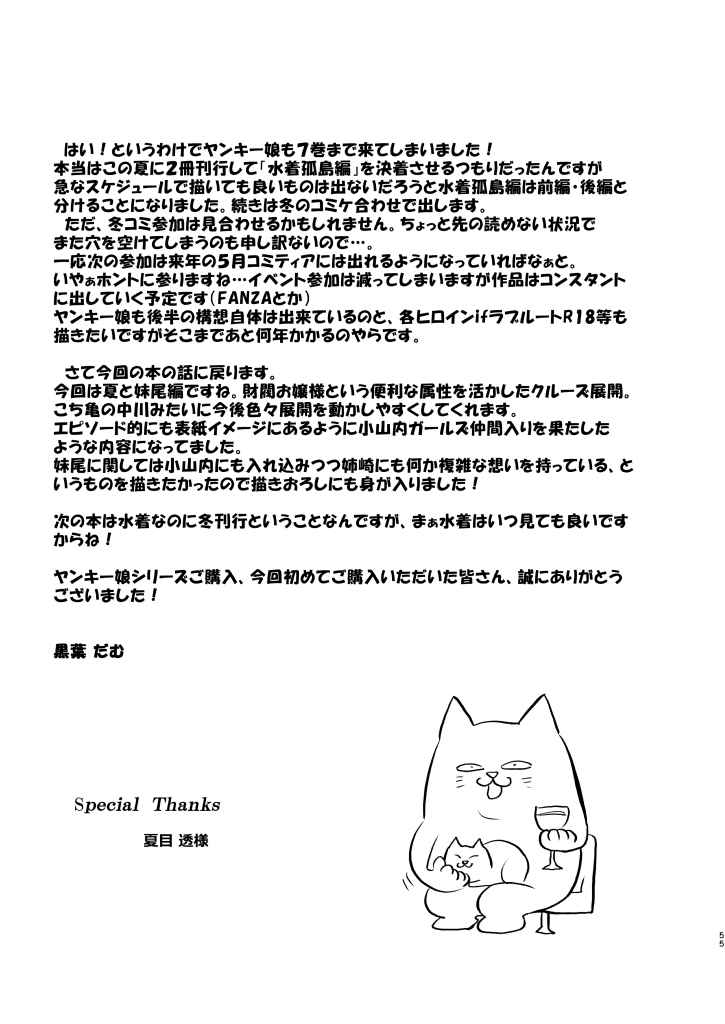 はい！というわけでヤンキー娘も７巻まで来てしまいました！
本当はこの夏に２冊刊行して「水着孤島編」を決着させるつもりだったんですが
急なスケジュールで描いても良いものは出ないだろうと水着孤島編は前編・後編と
分けることになりました。続きは冬のコミケ合わせで出します。
ただ、冬コミ参加は見合わせるかもしれません。ちょっと先の読めない状況で
また穴を空けてしまうのも申し訳ないので…。
一応次の参加は来年の５月コミティアには出れるようになっていればなぁと。
いやぁホントに参りますね…イベント参加は減ってしまいますが作品はコンスタント
に出していく予定です（FANZAとか）
ヤンキー娘も後半の構想自体は出来ているのと、各ヒロインifラブルートR18等も
描きたいですがそこまであと何年かかるのやらです。
さて今回の本の話に戻ります。
今回は夏と妹尾編ですね。財閥お嬢様という便利な属性を活かしたクルーズ展開。
こち亀の中川みたいに今後色々展開を動かしやすくしてくれます。
エピソード的にも表紙イメージにあるように小山内ガールズ仲間入りを果たした
ような内容になってました。
妹尾に関しては小山内にも入れ込みつつ姉崎にも何か複雑な想いを持っている、と
いうものを描きたかったので描きおろしにも身が入りました！
次の本は水着なのに冬刊行ということなんですが、まぁ水着はいつ見ても良いです
からね！
ヤンキー娘シリーズご購入、今回初めてご購入いただいた皆さん、誠にありがとう
ございました！
黒葉 だむ
Special Thanks
夏目 透様
55